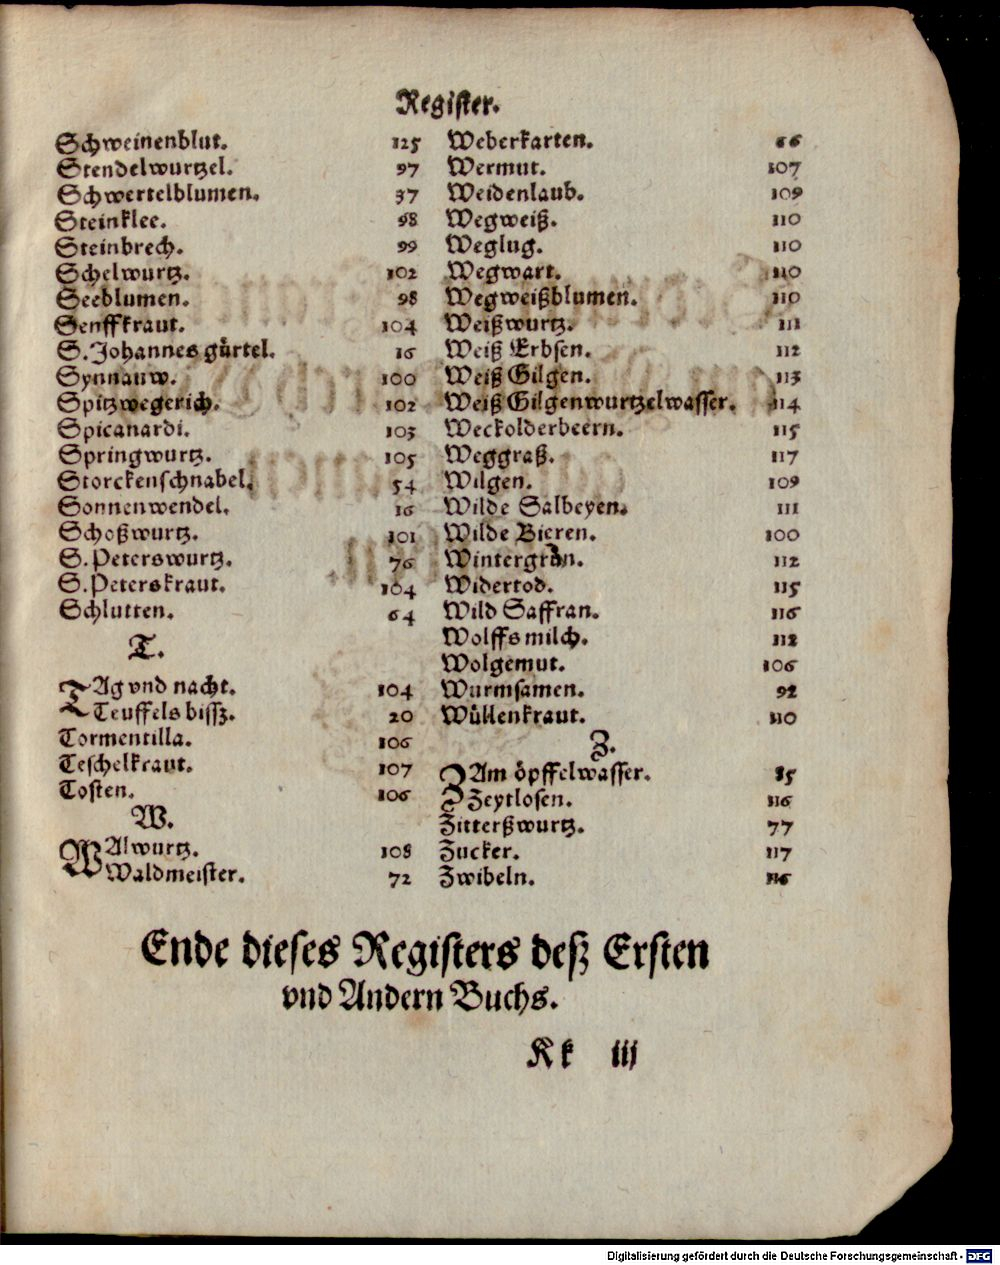 Register.
Schweinenblut. 125
Stendelwurtzel. 97
Schwertelblumen. 37
Steinklee. 98
Steinbrech. 99
Schelwurtz. 102
Seeblumen. 98
Senffkraut. 104
S. Johannes gürtel. 16
Synnauw. 100
Spitzwegerich. 102
Spicanardi. 103
Springwurtz. 105
Storckenschnabel. 54
Sonnenwendel. 16
Schoßwurtz. 101
S. Peterswurtz. 76
S. Peterskraut. 104
Schlutten. 64
T.
TAg vnd nacht. 104
Teuffels bissz. 20
Tormentilla. 106
Teschelkraut. 107
Tosten. 106
W.
WAlwurtz. 108
Waldmeister. 72
Weberkarten. 66
Wermut. 107
Weidenlaub. 109
Wegweiß. 110
Weglug. 110
Wegwart. 110
Wegweißblumen. 110
Weißwurtz. 111
Weiß Erbsen. 112
Weiß Gilgen. 113
Weiß Gilgenwurtzelwasser. 114
Weckolderbeern. 115
Weggraß. 117
Wilgen. 109
Wilde Salbeyen. 111
Wilde Bieren. 100
Wintergrün. 112
Widertod. 115
Wild Saffran. 116
Wolffsmilch. 112
Wolgemut. 106
Wurmsamen. 92
Wüllenkraut. 110
Z.
ZAm öpffelwasser. 85
Zeytlosen. 116
Zitterßwurtz. 77
Zucker. 117
Zwibeln. 116
Ende dieses Registers deß Ersten
vnd Andern Buchs.
Kk iij
Digitalisierung gefördert durch die Deutsche Forschungsgemeinschaft - DFG